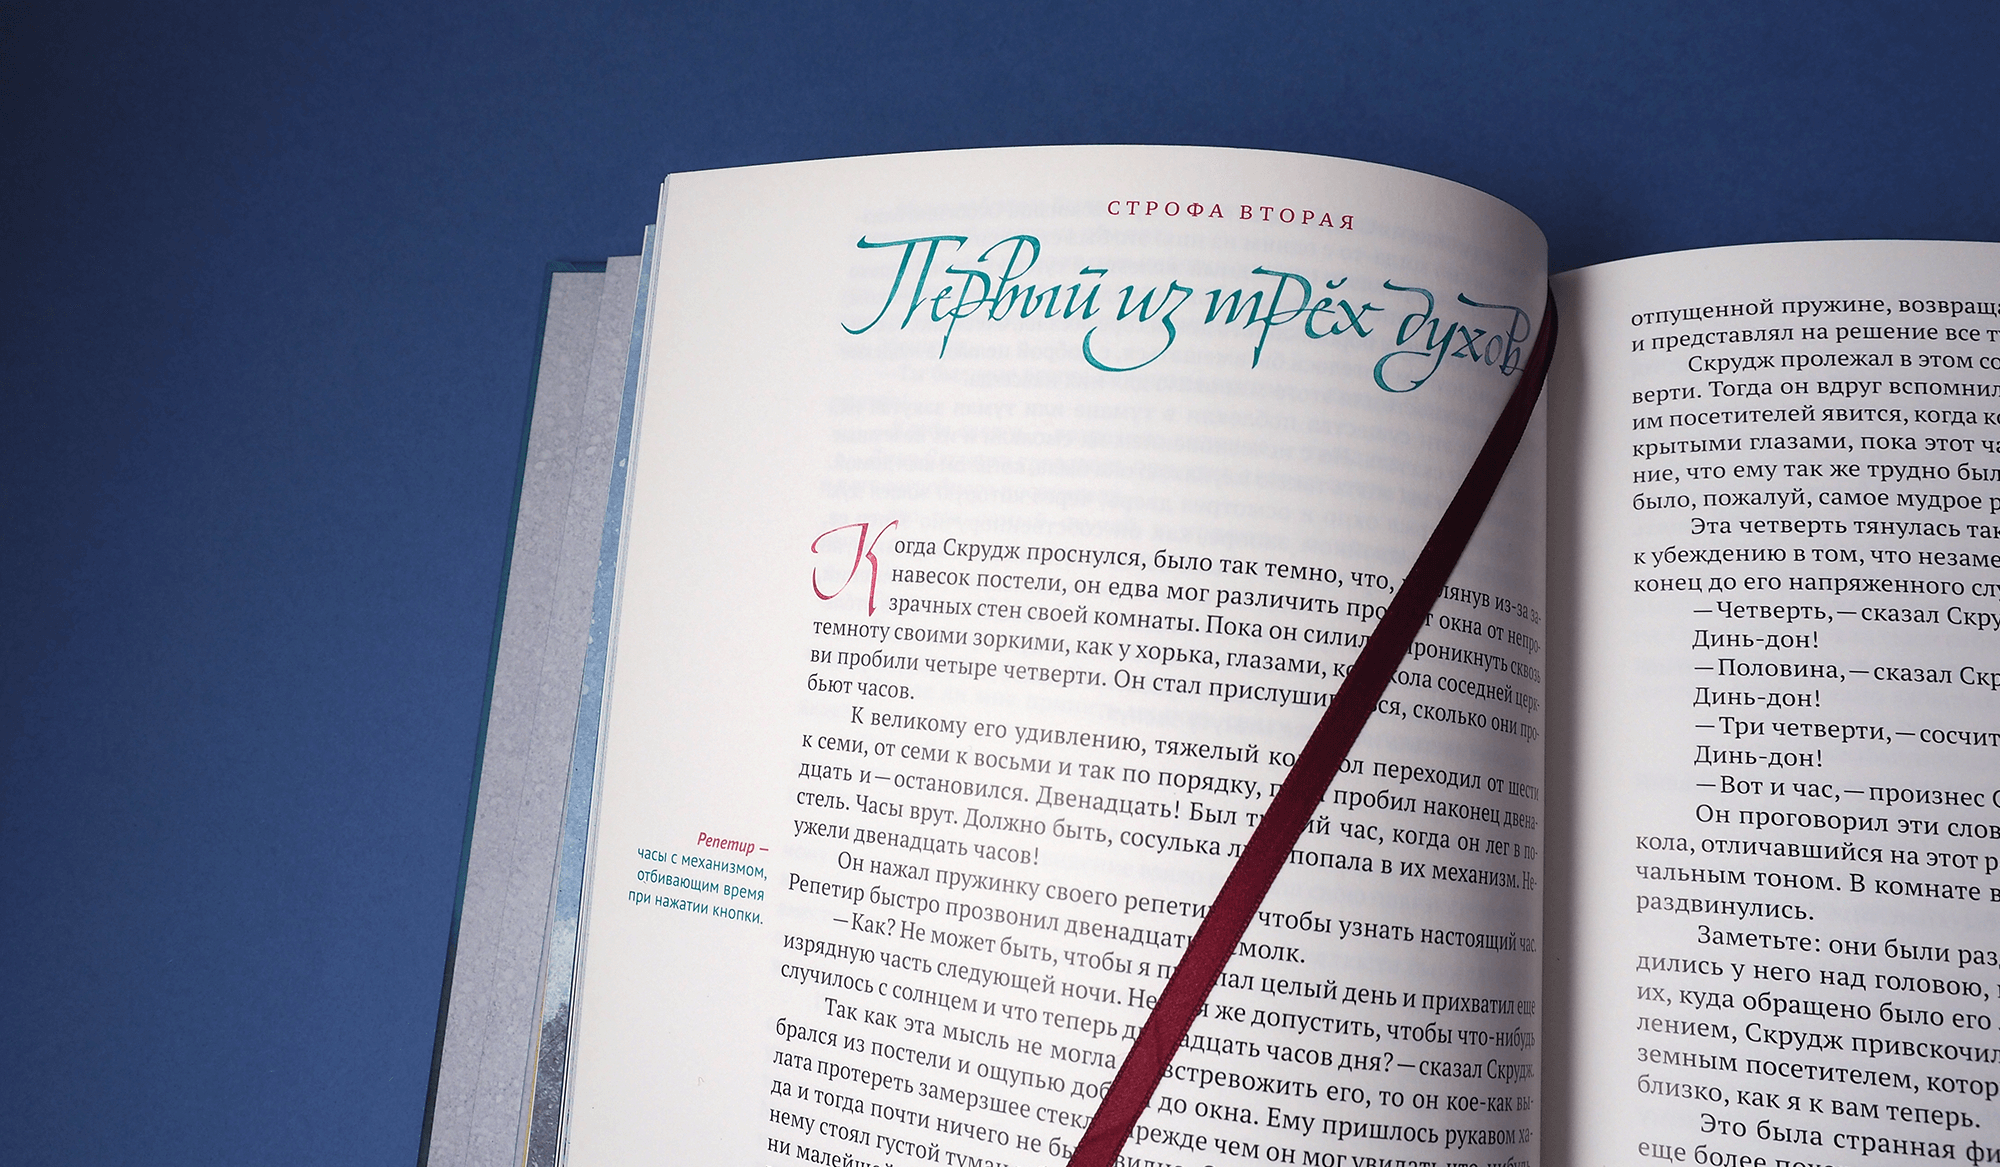 СТРОФА ВТОРАЯ
Первый из трёх духов
Когда Скрудж проснулся, было так темно, что, лянув из-за за-
навесок постели, он едва мог различить про т окна от непро-
зрачных стен своей комнаты. Пока он силил роникнуть сквозь
темноту своими зоркими, как у хорька, глазами, ко кола соседней церк-
ви пробили четыре четверти. Он стал прислуши ся, сколько они про-
бьют часов.
К великому его удивлению, тяжелый ко ол переходил от шести
к семи, от семи к восьми и так по порядку, п пробил наконец двена-
дцать и — остановился. Двенадцать! Был т ий час, когда он лег в по-
стель. Часы врут. Должно быть, сосулька л попала в их механизм. Не-
ужели двенадцать часов!
Он нажал пружинку своего репети чтобы узнать настоящий час.
Репетир быстро прозвонил двенадцат смолк.
— Как? Не может быть, чтобы я п пал целый день и прихватил еще
изрядную часть следующей ночи. Не я же допустить, чтобы что-нибудь
случилось с солнцем и что теперь д адцать часов дня? — сказал Скрудж.
Так как эта мысль не могла встревожить его, то он кое-как вы-
брался из постели и ощупью доб до окна. Ему пришлось рукавом ха-
лата протереть замерзшее стекл прежде чем он мог увидать что-нибудь
да и тогда почти ничего не бы видно.
нему стоял густой туман
ни малейшей
Репетир —
часы с механизмом,
отбивающим время
при нажатии кнопки.
отпущенной пружине, возвраща
и представлял на решение все т
Скрудж пролежал в этом со
верти. Тогда он вдруг вспомнил
им посетителей явится, когда к
крытыми глазами, пока этот ча
ние, что ему так же трудно был
было, пожалуй, самое мудрое р
Эта четверть тянулась так
к убеждению в том, что незаме
конец до его напряженного слу
— Четверть, — сказал Скру
Динь-дон!
— Половина, — сказал Скр
Динь-дон!
— Три четверти, — сосчит
Динь-дон!
— Вот и час, — произнес С
Он проговорил эти слов
кола, отличавшийся на этот р
чальным тоном. В комнате в
раздвинулись.
Заметьте: они были раз
дились у него над головою,
их, куда обращено было его
лением, Скрудж привскочил
земным посетителем, котор
близко, как я к вам теперь.
Это была странная фи
еще более по